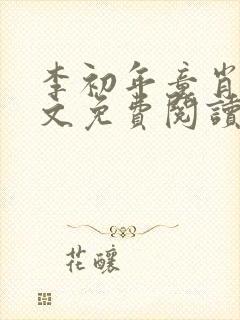 李初年章肖
文免費閱讀
花釀